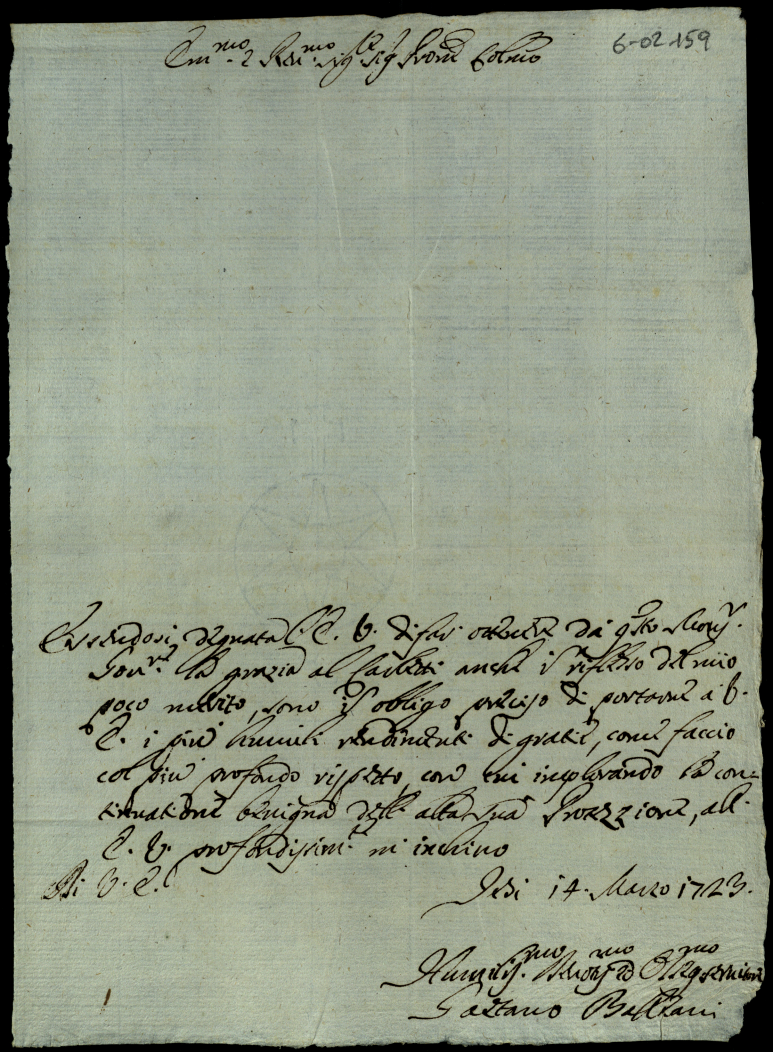 6-02-159
Em.mo e Rev.mo Sig.re Sig.r Pron.e Colmo
Essendosi degnata l'E. V. di far ottenere da q.sto Monsig.r
Gov.re la grazia al anche in riflesso del mio
poco merito, sono in obligo preciso di portarne a V.
E. i più humili rendimenti di gratie, come faccio
col più profondo rispetto, con cui implorando la con=
tinuatione benigna dell'alta sua Protezzione, all'
E. V. profondissim.te m'inchino
Di V. E.
Jesi 14. Marzo 1723.
Humiliss.mo Devotiss.mo ed Oblig.mo servitore
Gaetano